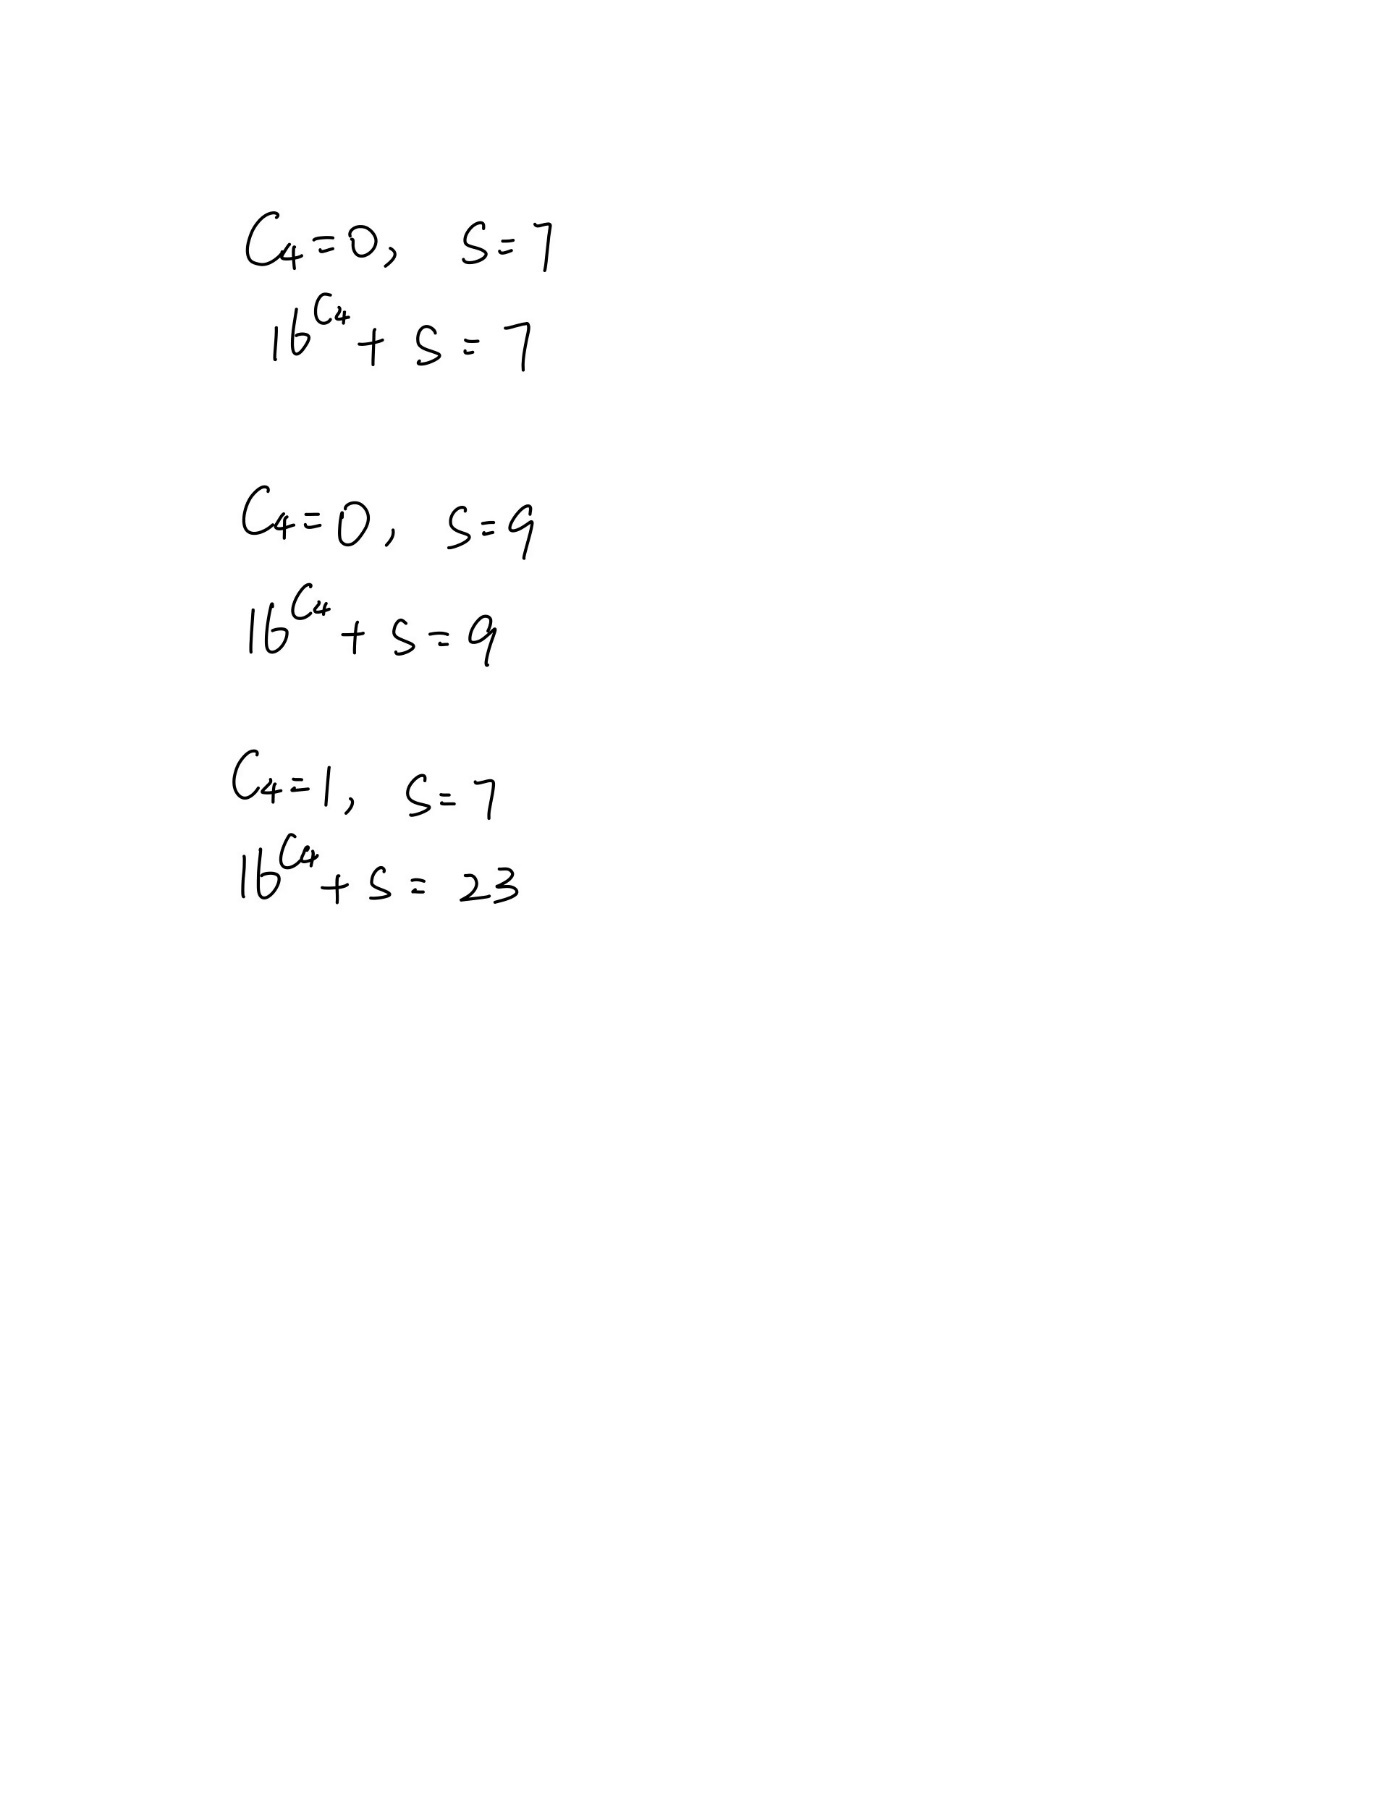 C₄=0, S=7
16^C₄ + S = 7
C₄=0, S=9
16^C₄ + S = 9
C₄=1, S=7
16^C₄ + S = 23